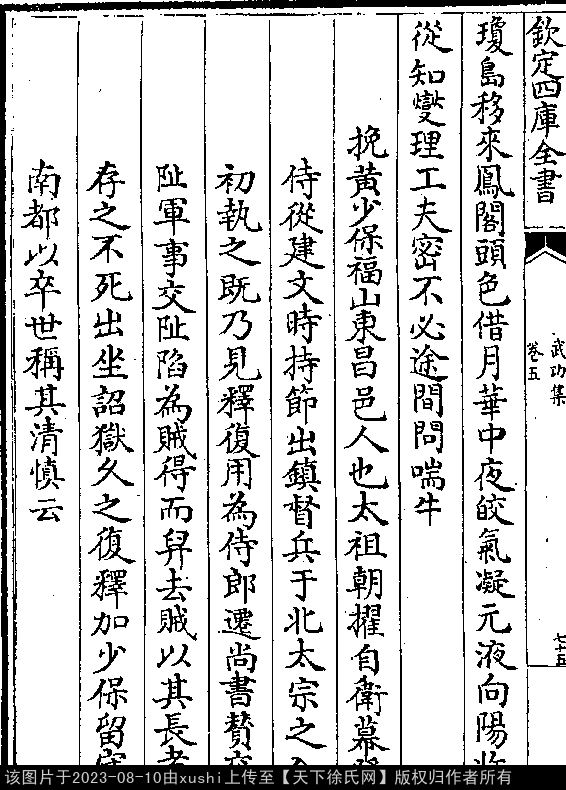 欽定四庫全書
武功集
卷五
七十五
瓊島移來鳳閣頭色借月華中夜皎氣凝元液向陽
從知燮理工夫密不必途間問喘牛
挽黄少保福山東昌邑人也太祖朝擢自衛幕
侍從建文時持節出鎮督兵于北太宗之
初執之既乃見釋復用為侍郎遷尚書賛
阯軍事交阯陷為賊得而舁去賊以其長者
存之不死出坐詔獄久之復釋加少保留守
南都以卒世稱其清慎云
该图片于2023-08-10由xushi上传至【天下徐氏网】版权归作者所有